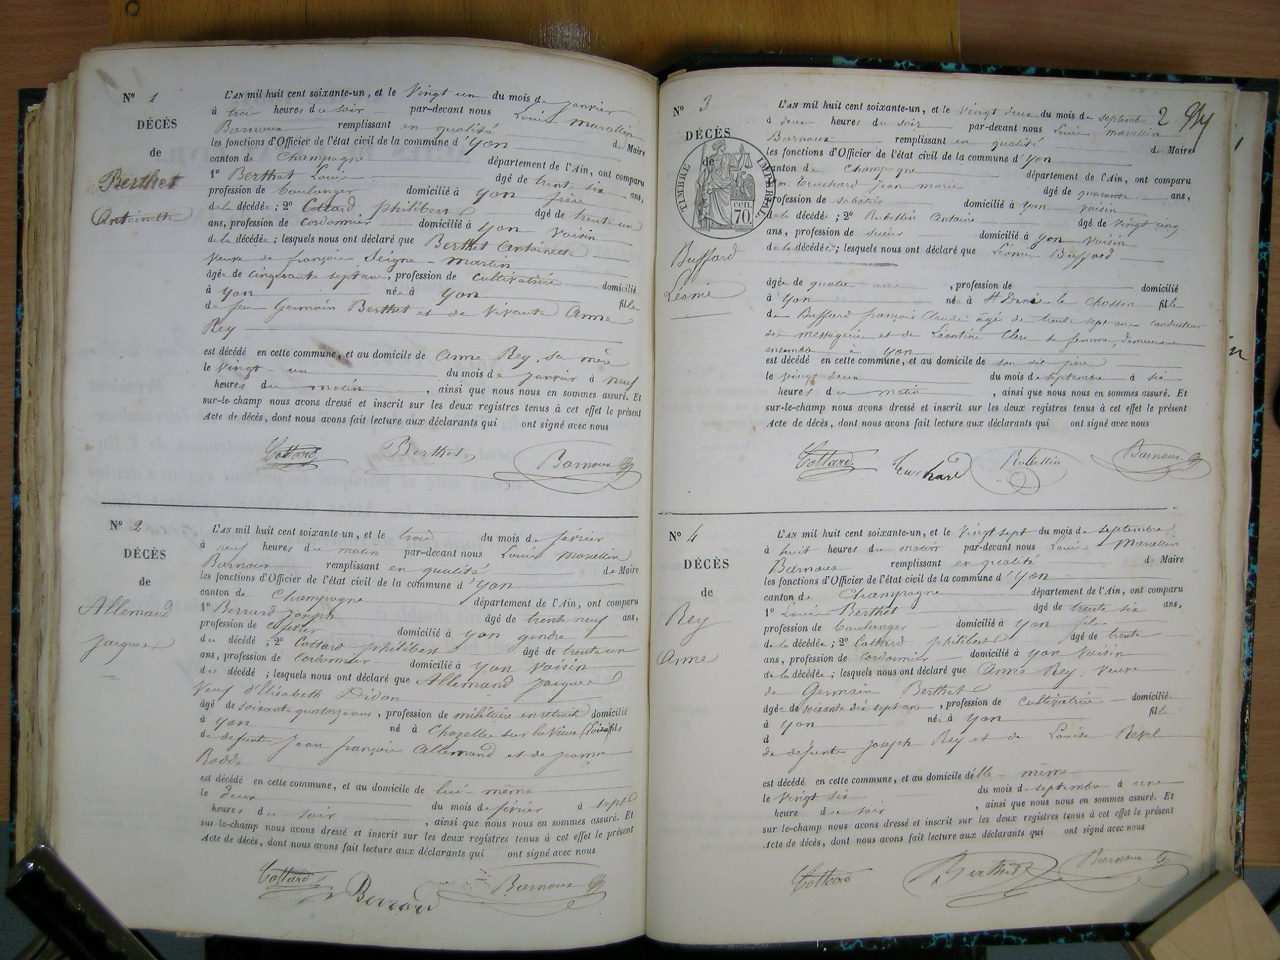 N° 1
DÉCÈS
de
Berthet
Antoinette
L'AN mil huit cent soixante-un, et le Vingt un du mois de janvier
à trois heures du soir par-devant nous Louis Marcellin
Barnoux remplissant en qualité de Maire
les fonctions d'Officier de l'état civil de la commune d'Yon
canton de Champagne département de l'Ain, ont comparu
1° Berthet Louis âgé de trente six ans,
profession de boulanger domicilié à Yon frère
de la décédée ; 2° Cottard philibert âgé de trente un
ans, profession de cordonnier domicilié à Yon Voisin
de la décédée ; lesquels nous ont déclaré que Berthet Antoinette
Veuve de françois Seigne-Martin
âgée de cinquante sept ans, profession de cultivatrice domicilié
à Yon née à Yon fille
de feu Germain Berthet et de Vivante Anne
Rey
est décédé en cette commune, et au domicile de Anne Rey, sa mère
le Vingt un du mois de janvier à neuf
heures du matin , ainsi que nous nous en sommes assuré. Et
sur-le-champ nous avons dressé et inscrit sur les deux registres tenus à cet effet le présent
Acte de décès, dont nous avons fait lecture aux déclarants qui ont signé avec nous
Cottard Berthet Barnoux
N° 2
DÉCÈS
de
Allemand
Jacques
L'AN mil huit cent soixante-un, et le trois du mois de février
à neuf heures du matin par-devant nous Louis Marcellin
Barnoux remplissant en qualité de Maire
les fonctions d'Officier de l'état civil de la commune d'Yon
canton de Champagne département de l'Ain, ont comparu
1° Berrard Joseph âgé de trente neuf ans,
profession de domicilié à Yon gendre
du décédé ; 2° Cottard philibert âgé de trente un
ans, profession de Cordonnier domicilié à Yon Voisin
du décédé ; lesquels nous ont déclaré que Allemand Jacques
Veuf d'Elisabeth Didon
âgé de soixante quatorze ans, profession de militaire en retraite domicilié
à Yon né à Chazelles sur la Vieux (Loire) fils
de defunts Jean françois Allemand et de jeanne
est décédé en cette commune, et au domicile de lui-même
le deux du mois de février à sept
heures du soir , ainsi que nous nous en sommes assuré. Et
sur-le-champ nous avons dressé et inscrit sur les deux registres tenus à cet effet le présent
Acte de décès, dont nous avons fait lecture aux déclarants qui ont signé avec nous
Cottard Berrard Barnoux
2
N° 3
DÉCÈS
de
TIMBRE IMPÉRIAL
70 CEN.
Buffard
Léonie
L'AN mil huit cent soixante-un, et le Vingt deux du mois de septembre
à deux heures du soir par-devant nous Louis Marcellin
Barnoux remplissant en qualité de Maire
les fonctions d'Officier de l'état civil de la commune d'Yon
canton de Champagne département de l'Ain, ont comparu
jean marie âgé de quarante ans,
profession de domicilié à Yon voisin
de la décédée ; 2° Rubellin Antoine âgé de Vingt cinq
ans, profession de domicilié à Yon Voisin
de la décédée ; lesquels nous ont déclaré que Léonie Buffard
âgée de quatre ans , profession de domicilié
à Yon née à St Denis le Chosson fille
de Buffard françois Claude âgé de trente sept ans conducteur
des messageries et de Léontine Clerc sa femme, demeurant
ensemble à Yon
est décédé en cette commune, et au domicile de son dit père
le Vingt deux du mois de septembre à six
heures du matin , ainsi que nous nous en sommes assuré. Et
sur-le-champ nous avons dressé et inscrit sur les deux registres tenus à cet effet le présent
Acte de décès, dont nous avons fait lecture aux déclarants qui ont signé avec nous
Cottard Rubellin Barnoux
N° 4
DÉCÈS
de
Rey
Anne
L'AN mil huit cent soixante-un, et le Vingt sept du mois de septembre
à huit heures du matin par-devant nous Louis Marcellin
Barnoux remplissant en qualité de Maire
les fonctions d'Officier de l'état civil de la commune d'Yon
canton de Champagne département de l'Ain, ont comparu
1° Louis Berthet âgé de trente six ans,
profession de boulanger domicilié à Yon fils
de la décédée ; 2° Cottard philibert âgé de trente
ans, profession de cordonnier domicilié à Yon Voisin
de la décédée ; lesquels nous ont déclaré que Anne Rey, Veuve
de Germain Berthet
âgée de soixante dix sept ans , profession de Cultivatrice domicilié
à Yon née à Yon fille
d
de defunts Joseph Rey et de Louise
est décédé en cette commune, et au domicile d'elle-même
le Vingt six du mois de septembre à une
heure du soir , ainsi que nous nous en sommes assuré. Et
sur-le-champ nous avons dressé et inscrit sur les deux registres tenus à cet effet le présent
Acte de décès, dont nous avons fait lecture aux déclarants qui ont signé avec nous
Cottard Berthet Barnoux